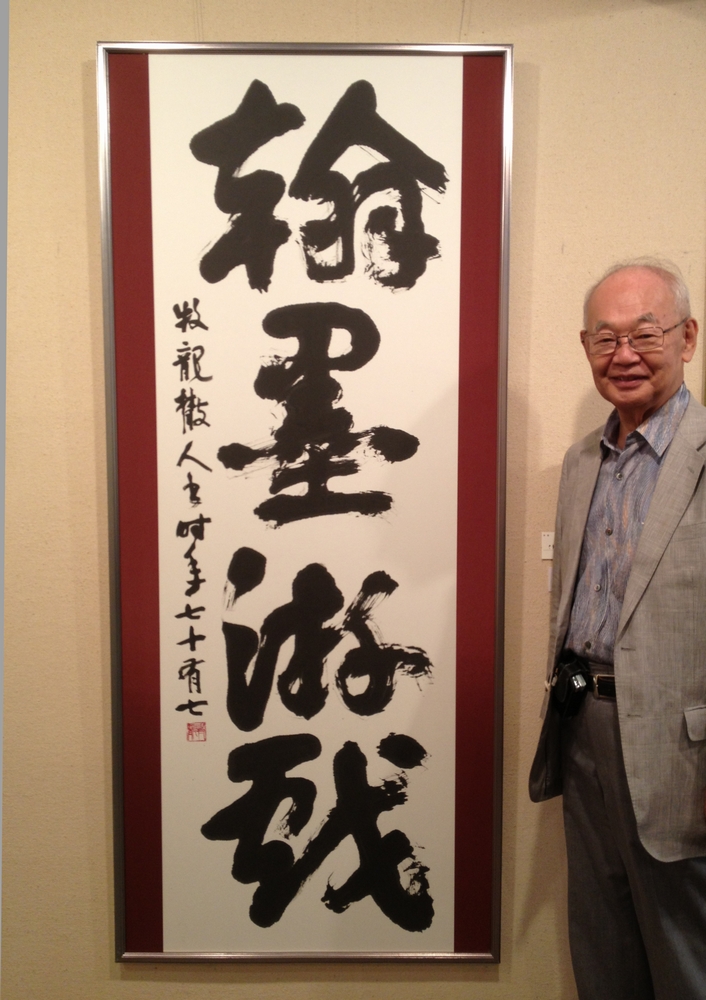 翰墨游戯
牧龍散人書时年七十有七